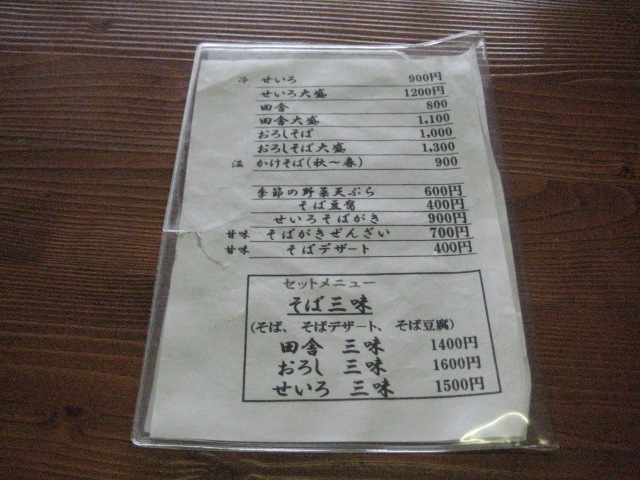 冷 せいろ 900円
せいろ大盛 1200円
田舎 800
田舎大盛 1,100
おろしそば 1,000
おろしそば大盛 1,300
温 かけそば(秋～春) 900
季節の野菜天ぷら 600円
そば豆腐 400円
せいろそばがき 900円
甘味 そばがきぜんざい 700円
甘味 そばデザート 400円
セットメニュー
そば三味
(そば、そばデザート、そば豆腐)
田舎 三味 1400円
おろし 三味 1600円
せいろ 三味 1500円